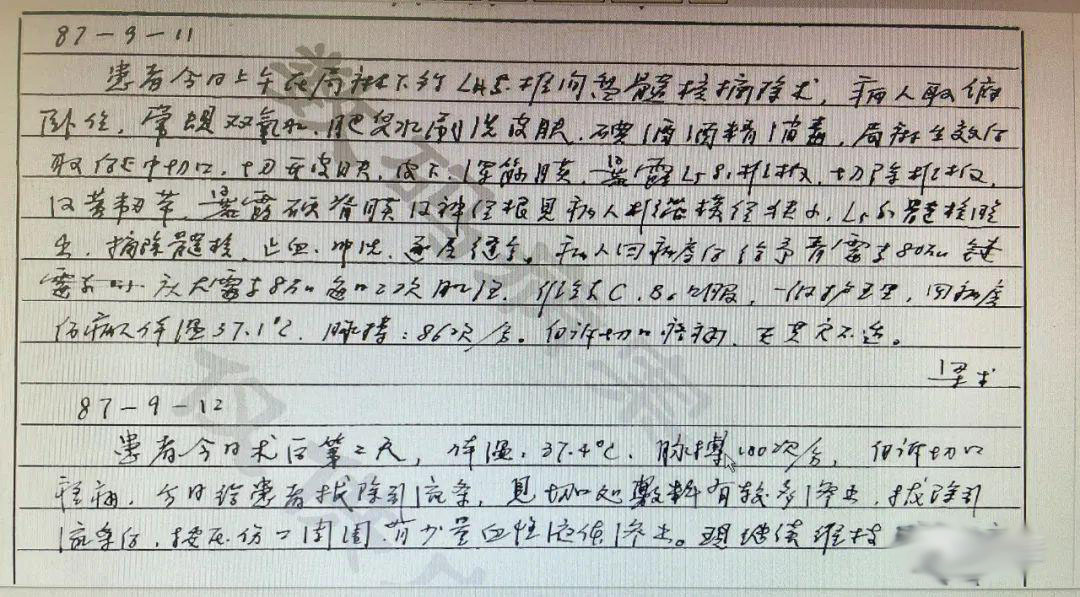 87-9-11
患者今日上午在局麻下行L4.5椎间盘髓核摘除术，病人取俯
卧位，常规双氧水、肥皂水刷洗皮肤，碘酒酒精消毒，局麻生效后
取后正中切口，切开皮肤，皮下，深筋膜，暴露L5S1椎板，切除椎板，
及黄韧带，暴露硬脊膜及神经根见病人椎管狭小，髓核脱
出，摘除髓核，止血、冲洗，逐层缝合。病人回病房后给予青霉素80万u 链
霉素 庆大霉素8万u每日二次肌注，维生素C、B6口服，一级护理，回病房
后病人体温37.1℃，脉搏：86次/分。自诉切口疼痛，无其它不适。
87-9-12
患者今日术后第二天，体温：37.4℃，脉搏100次/分，自诉切口
疼痛，今日给患者拔除引流条，见切口处敷料有较多渗出，拔除引
流条后，按压伤口周围有少量血性液体渗出。现继续维持